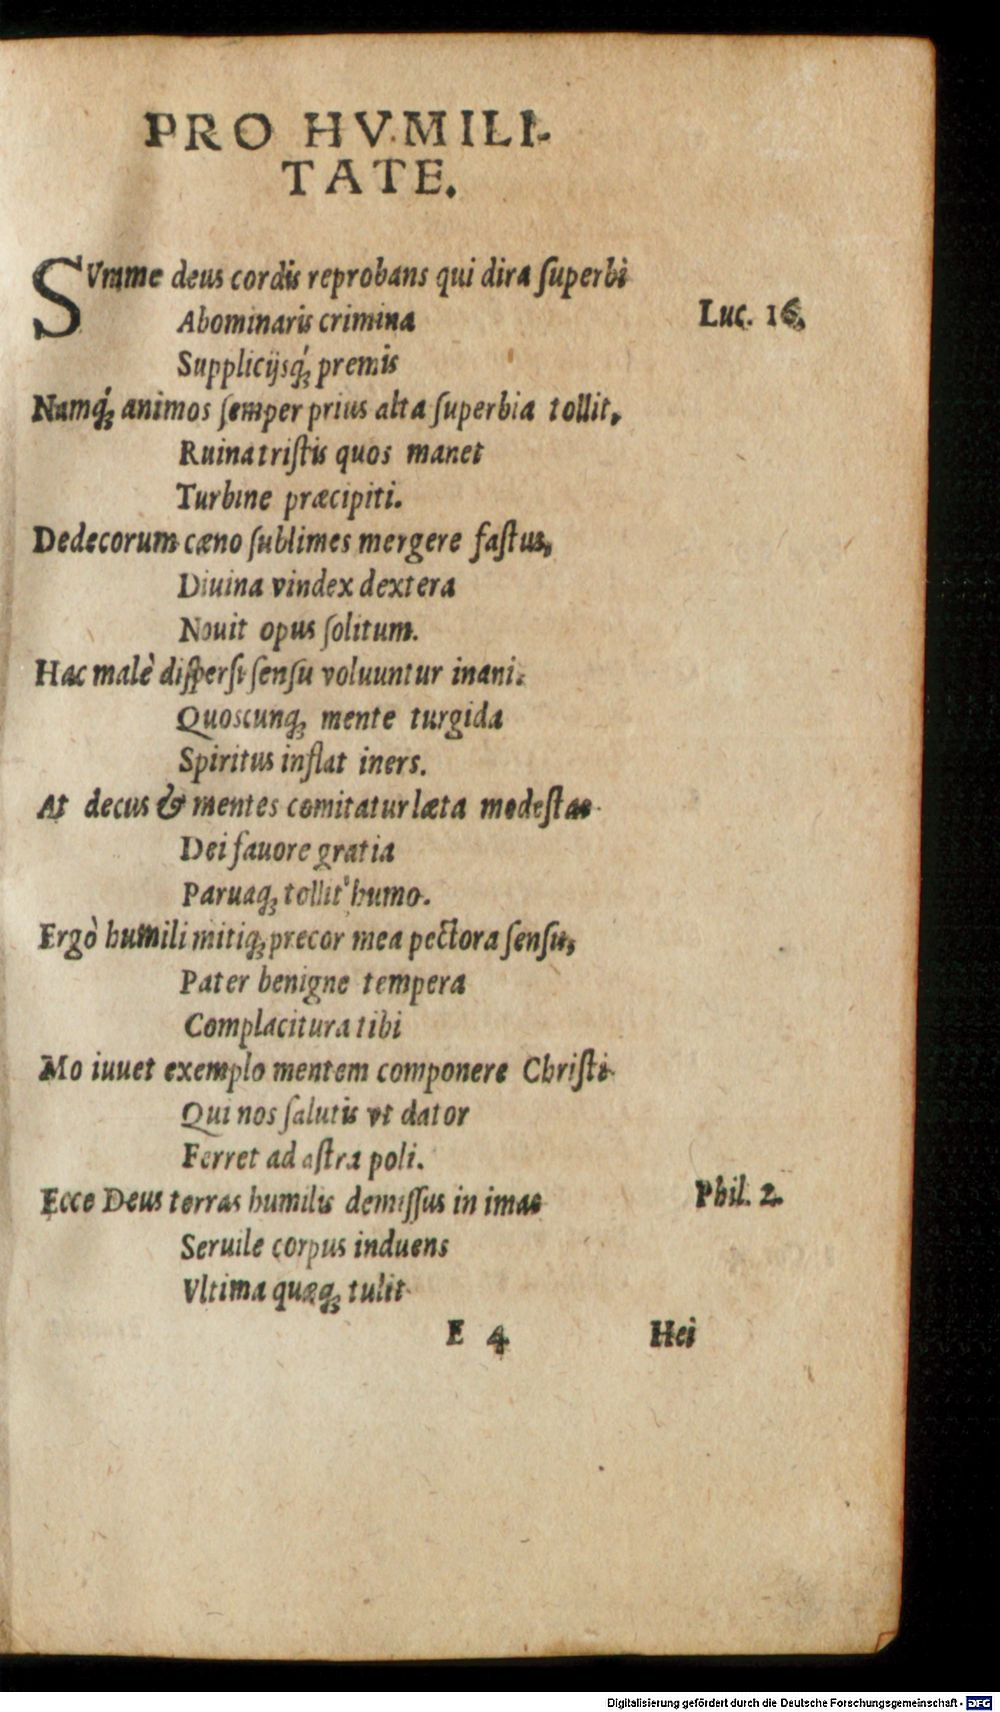 PRO HVMILI-
TATE.
SVmme deus cordis reprobans qui dira ſuperbi
Luc. 16.
Abominaris crimina
Supplicijsq́; premis
Namq́; animos ſemper prius alta ſuperbia tollit,
Ruina triſtis quos manet
Turbine præcipiti.
Dedecorum cæno ſublimes mergere faſtus,
Diuina vindex dextera
Nouit opus ſolitum.
Hac malè diſperſi ſenſu voluuntur inani.
Quoscunq; mente turgida
Spiritus inflat iners.
At decus & mentes comitatur læta modeſtas
Dei fauore gratia
Paruaq; tollit humo.
Ergò humili mitiq; precor mea pectora ſenſu,
Pater benigne tempera
Complacitura tibi
Mo iuuet exemplo mentem componere Chriſti
Qui nos ſalutis vt dator
Ferret ad aſtra poli.
Ecce Deus terras humilis demiſſus in imas
Phil. 2.
Seruile corpus induens
Vltima quæq; tulit
E 4 Hei
Digitalisierung gefördert durch die Deutsche Forschungsgemeinschaft - DFG